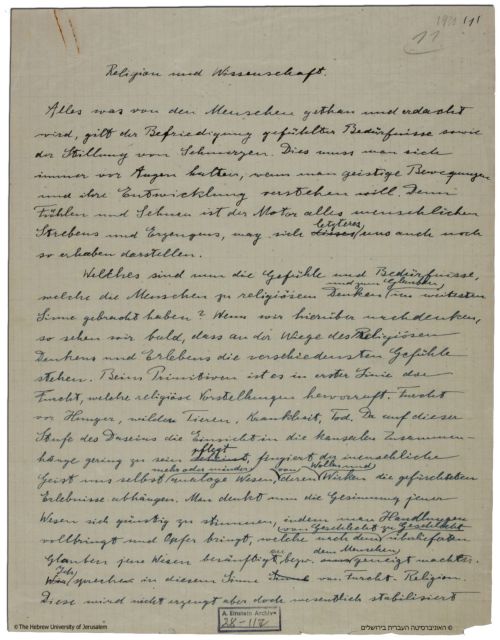 1930 1/1
11
Religion und Wissenschaft.
Alles was von den Menschen gethan und erdacht
wird, gilt der Befriedigung gefühlter Bedürfnisse sowie
der Stillung von Schmerzen. Dies muss man sich
immer vor Augen halten, wenn man geistige Bewegungen
und ihre Entwicklung verstehen will. Denn
Fühlen und Sehnen ist der Motor alles menschlichen
letzteres
Strebens und Erzeugens, mag sich dieses uns auch noch
so erhaben darstellen.
Welches sind nun die Gefühle und Bedürfnisse,
und zum Glauben
welche die Menschen zu religiösem Denken im weitesten
Sinne gebracht haben? Wenn wir hierüber nachdenken,
so sehen wir bald, dass an der Wiege des Religiösen
Denkens und Erlebens die verschiedensten Gefühle
stehen. Beim Primitiven ist es in erster Linie die
Furcht, welche religiöse Vorstellungen hervorruft. Furcht
vor Hunger, wilden Tieren, Krankheit, Tod. Da auf dieser
Stufe des Daseins die Einsicht in die kausalen Zusammen-
pflegt
hänge gering zu sein scheint, fingiert der menschliche
mehr oder minder von Wollen und
Geist uns selbst analoge Wesen, deren Wirken die gefürchteten
Erlebnisse abhängen. Man denkt nun die Gesinnung jener
Wesen sich günstig zu stimmen, indem man Handlungen
von Geschlecht zu Geschlecht
vollbringt und Opfer bringt, welche nach dem überlieferten
dem Menschen
Glauben jene Wesen besänftigen, bezw. geneigt machen.
Ich
spreche in diesem Sinne von Furcht-Religion.
Diese wird nicht erzeugt aber doch wesentlich stabilisiert
A. Einstein Archive
28-112
© The Hebrew University of Jerusalem
© האוניברסיטה העברית בירושלים